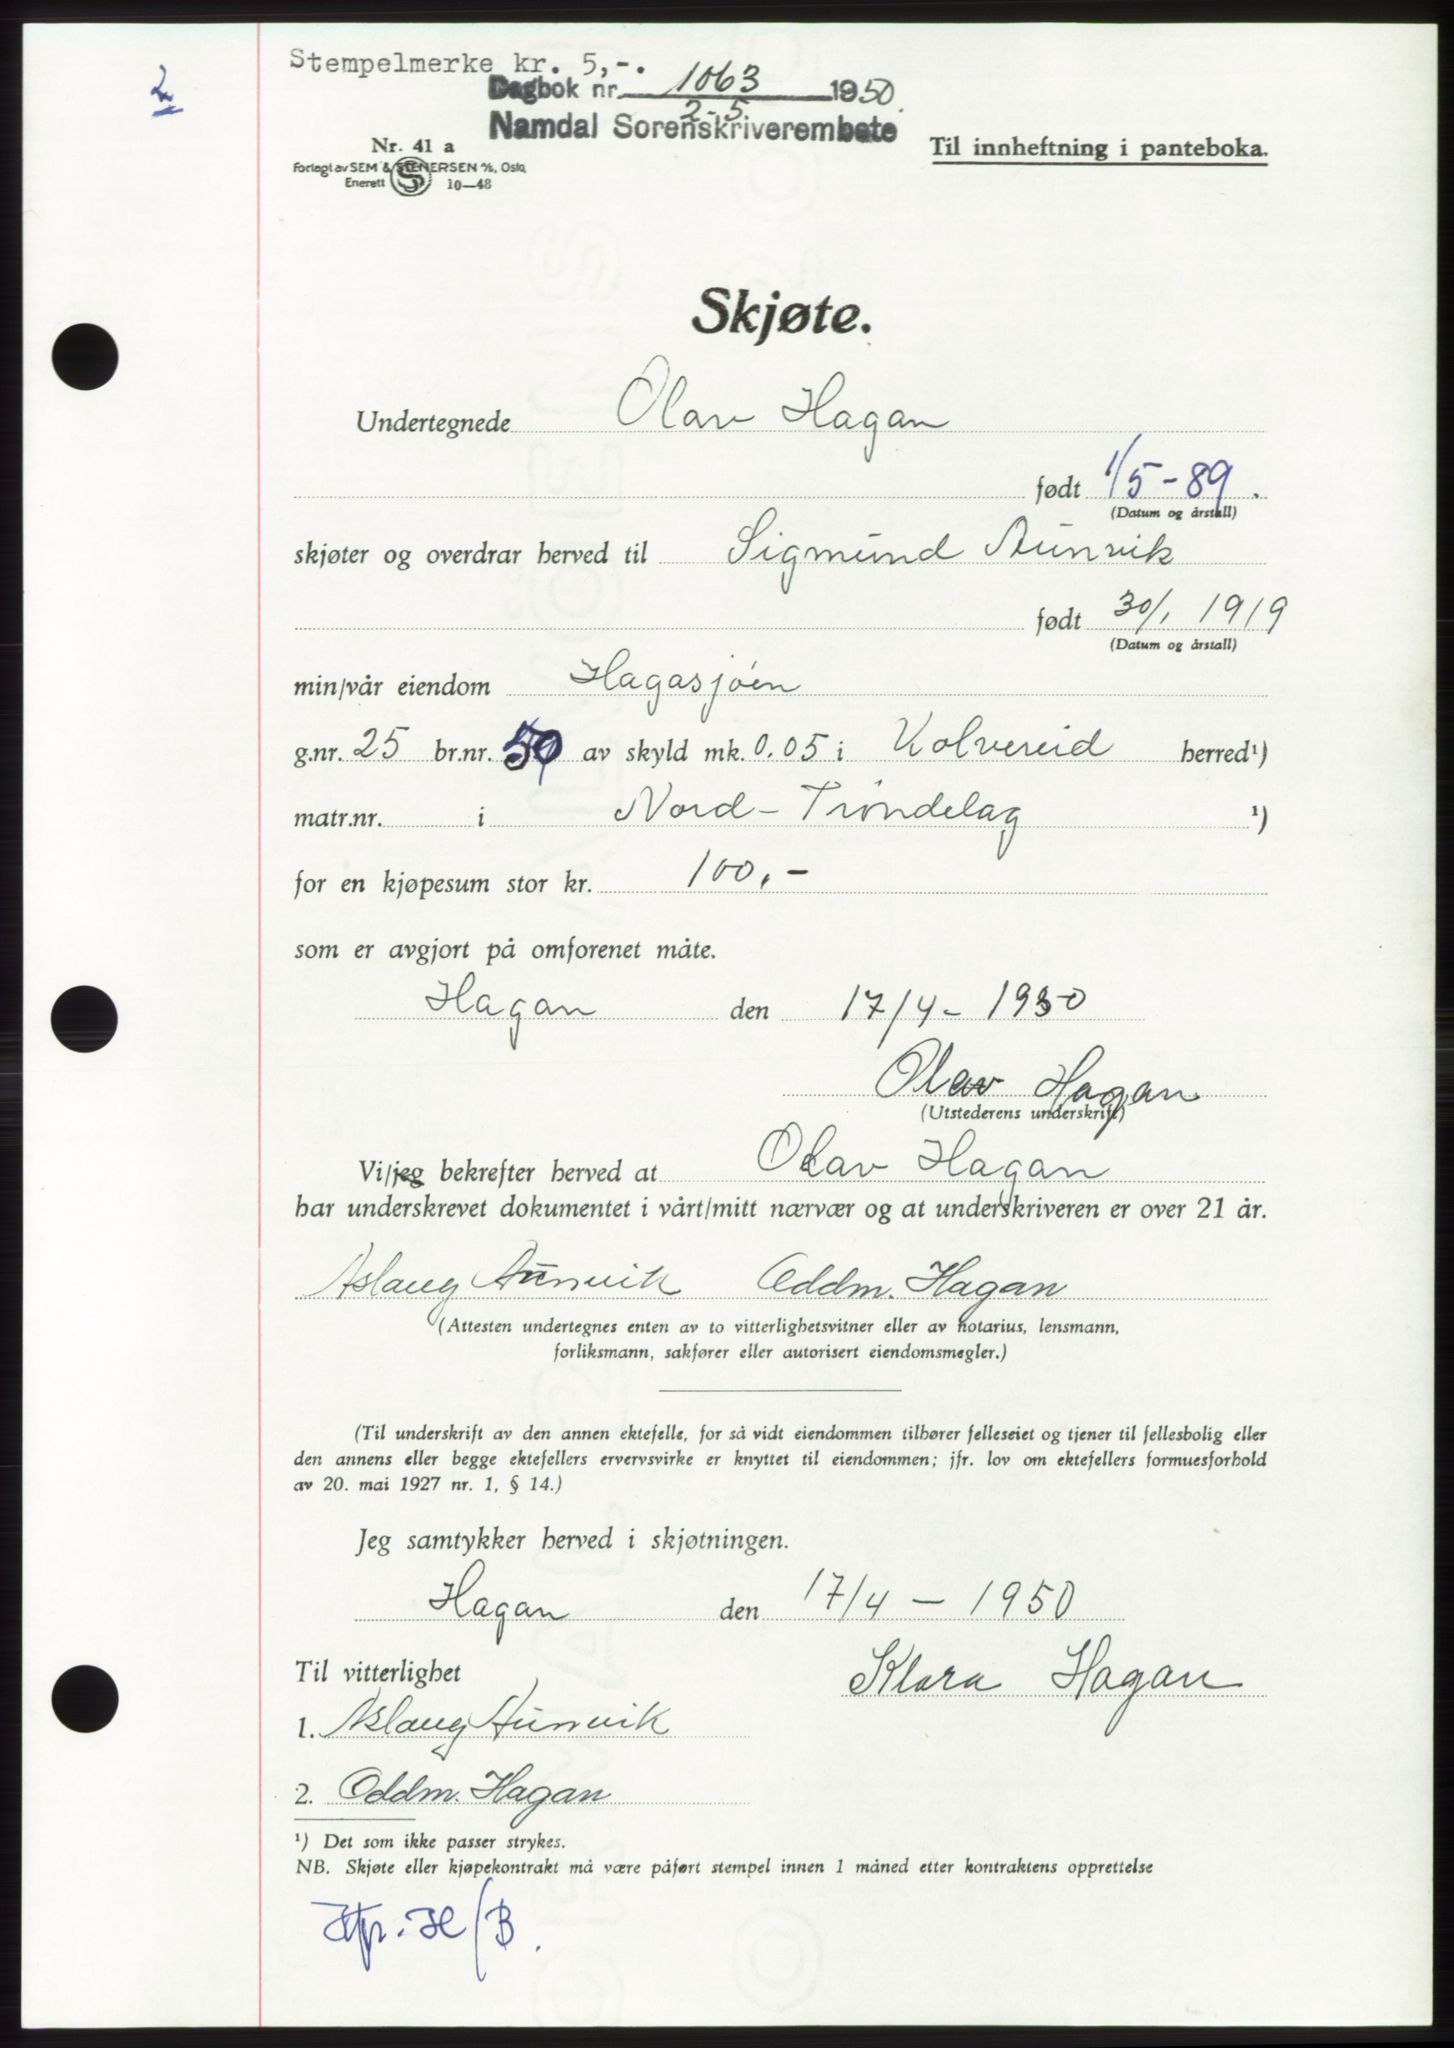 2
Stempelmerke kr. 5,-.
Dagbok nr. 1063 1950.
2-5
Namdal Sorenskriverembete
Nr. 41 a
Til innheftning i panteboka.
Forlagt av SEM & STENERSEN A/S, Oslo
Enerett S 10—48
Skjøte.
Undertegnede Olav Hagan
født 1/5-89.
(Datum og årstall)
skjøter og overdrar herved til Sigmund Aunvik
født 30/1 1919
(Datum og årstall)
min/vår eiendom Hagasjøen
g.nr. 25 br.nr. 50 av skyld mk. 0.05 i Kolvereid herred¹)
matr.nr. i Nord-Trøndelag ¹)
for en kjøpesum stor kr. 100,-
som er avgjort på omforenet måte.
Hagan den 17/4-1950
Olav Hagan
(Utstederens underskrift)
Vi/jeg bekrefter herved at Olav Hagan
har underskrevet dokumentet i vårt/mitt nærvær og at underskriveren er over 21 år.
Aslaug Aunvik Oddm. Hagan
(Attesten undertegnes enten av to vitterlighetsvitner eller av notarius, lensmann,
forliksmann, sakfører eller autorisert eiendomsmegler.)
(Til underskrift av den annen ektefelle, for så vidt eiendommen tilhører felleseiet og tjener til fellesbolig eller
den annens eller begge ektefellers ervervsvirke er knyttet til eiendommen; jfr. lov om ektefellers formuesforhold
av 20. mai 1927 nr. 1, § 14.)
Jeg samtykker herved i skjøtningen.
Hagan den 17/4 - 1950
Til vitterlighet
Klara Hagan
1. Aslaug Aunvik
2. Oddm. Hagan
¹) Det som ikke passer strykes.
NB. Skjøte eller kjøpekontrakt må være påført stempel innen 1 måned etter kontraktens opprettelse